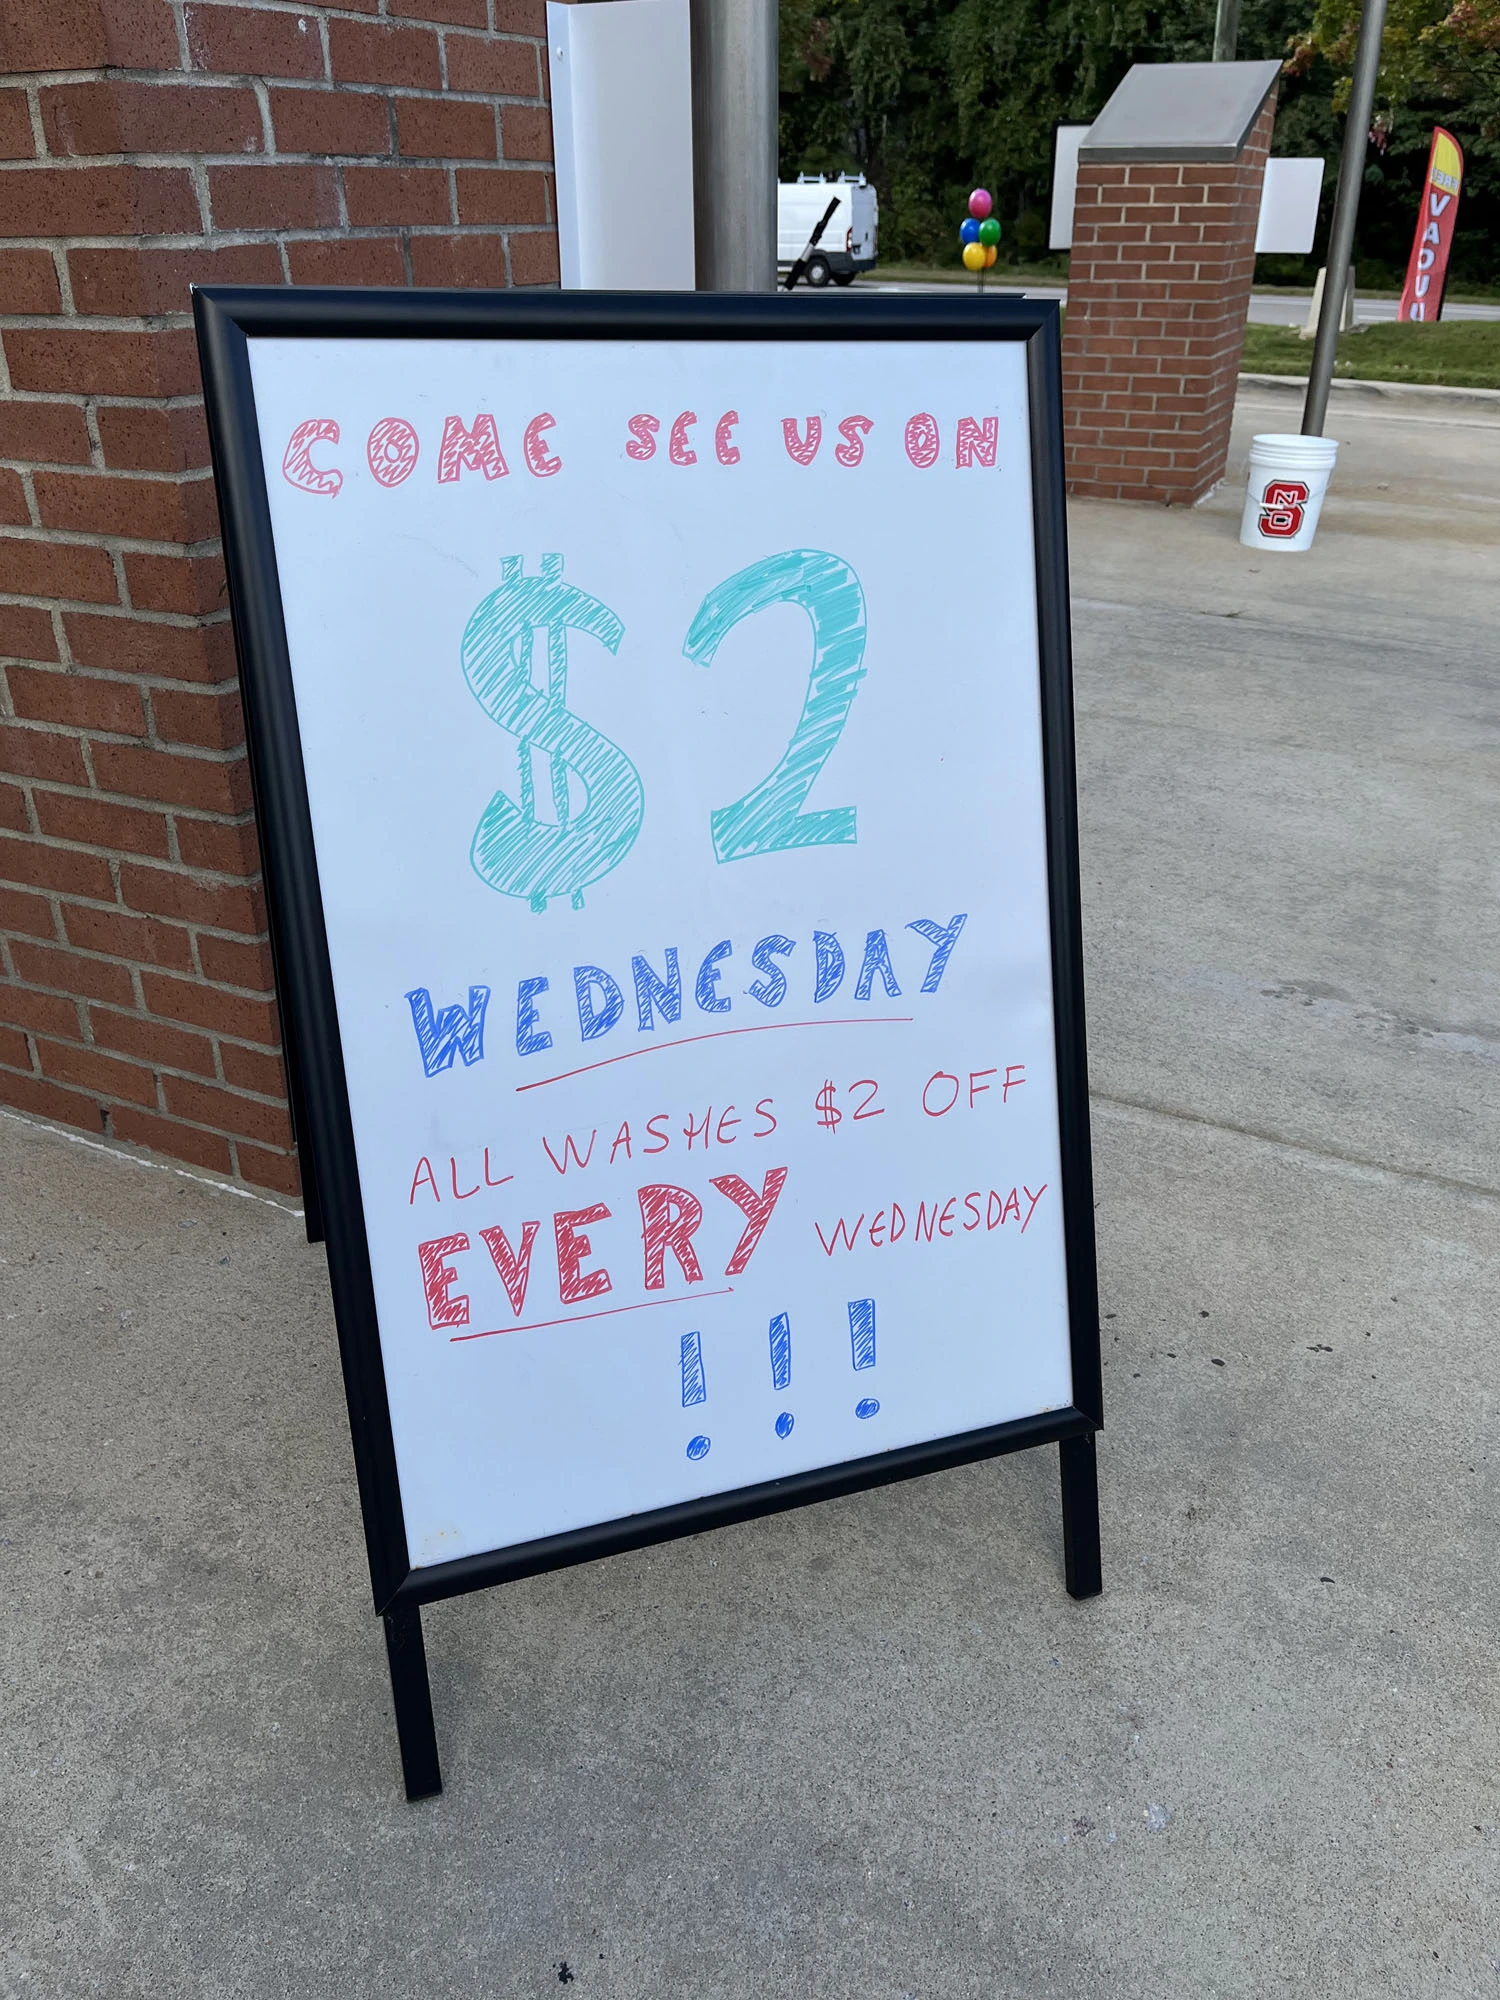 COME SEE US ON
$2
WEDNESDAY
ALL WASHES $2 OFF
EVERY WEDNESDAY
!!!
NCS